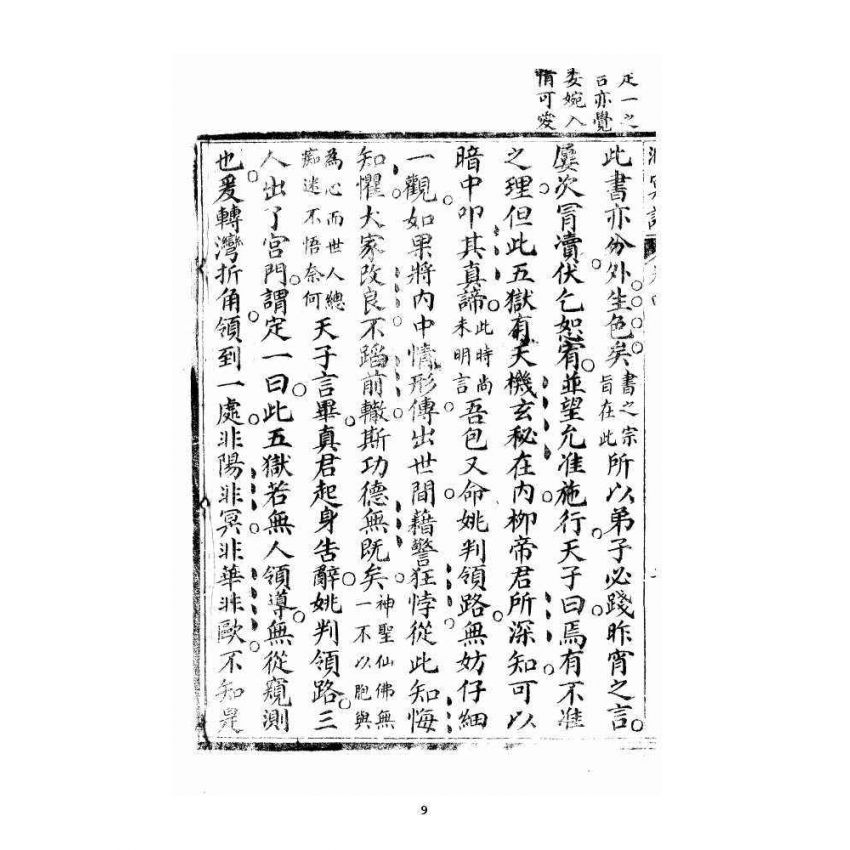 定一之
言亦覺
委婉入
情可後
洞冥記
此書亦份外生色矣書之宗旨在此所以弟子必踐昨宵之言
屢次冒瀆伏乞恕宥並望允准施行天子曰焉有不准
之理但此五獄有天機玄秘在內柳帝君所深知可以
暗中叩其真諦此時尚未明言吾包又命姚判領路無妨仔細
一觀如果將內中情形傳出世間藉警狂悖從此知悔
知懼大家改良不蹈前轍斯功德無既矣神聖仙佛無一不以胞與
為心而世人總痴迷不悟奈何天子言畢真君起身告辭姚判領路三
人出了宮門謂定一曰此五獄若無人領導無從窺測
也爰轉灣折角領到一處非陽非冥非華非歐不知是
9